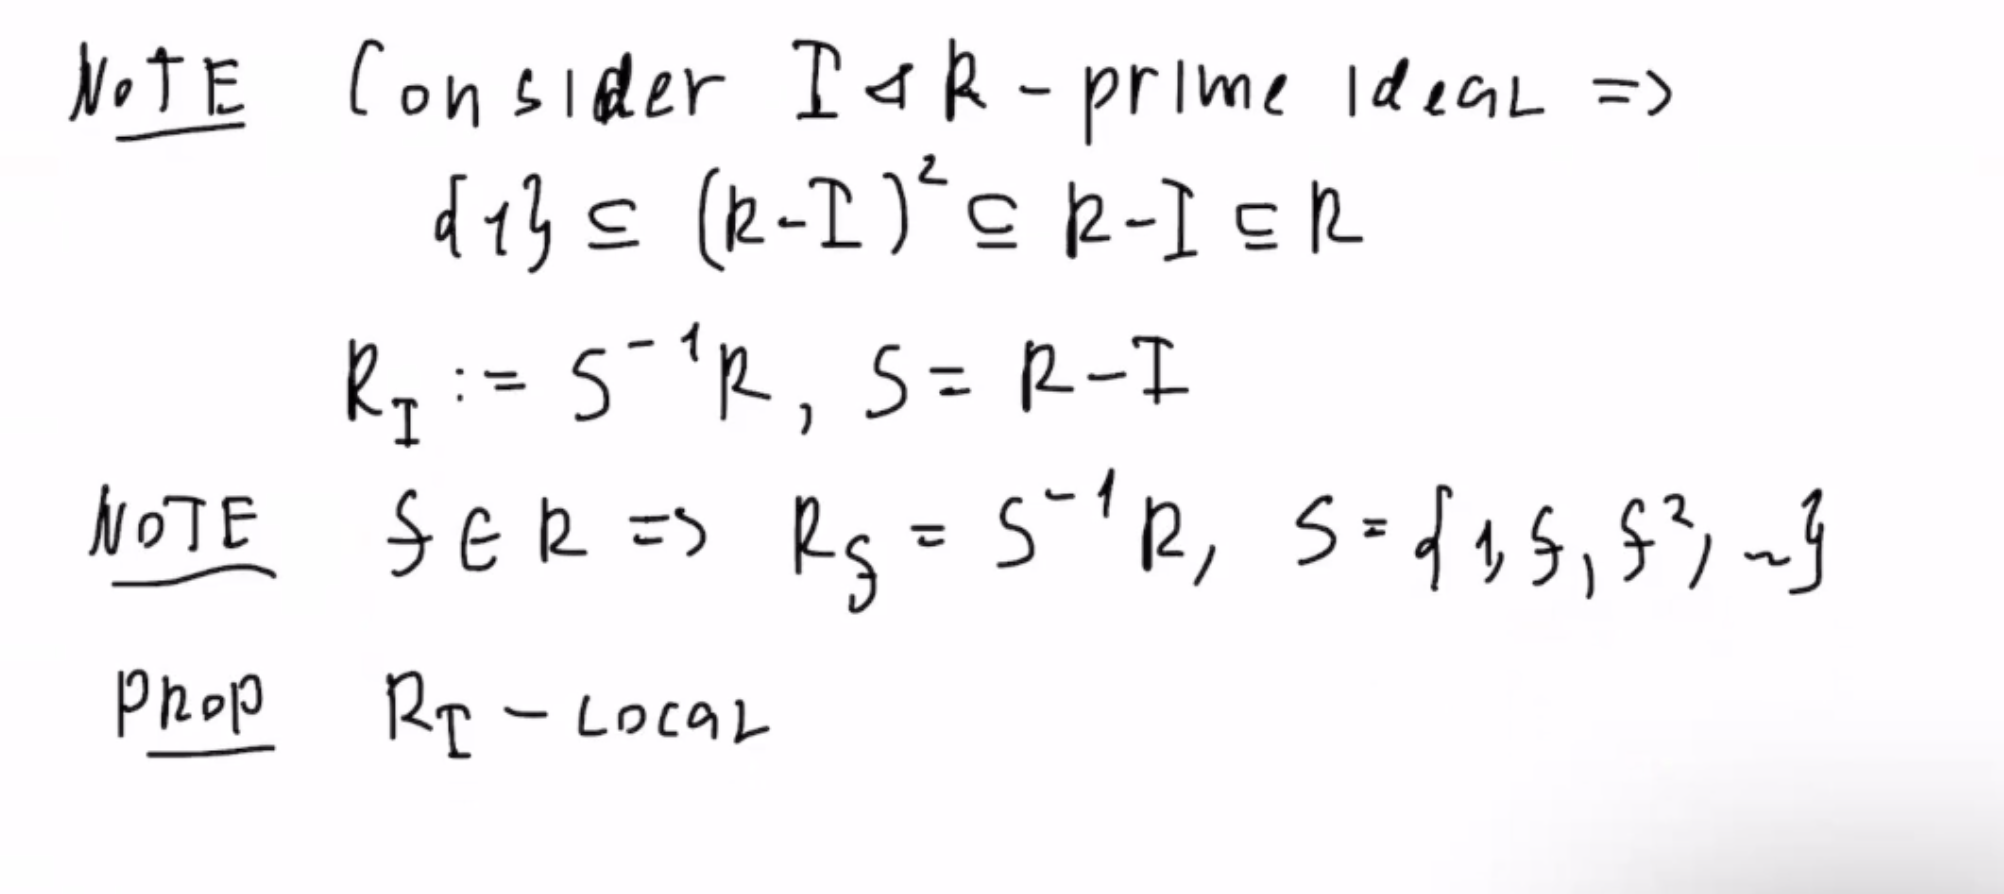 NOTE Consider I ◁ R - prime ideal =>
{1} ⊆ (R-I)² ⊆ R-I ⊆ R
R_I := S⁻¹R, S = R-I
NOTE f ∈ R => R_f = S⁻¹R, S = {1, f, f², ...}
PROP R_I - Local